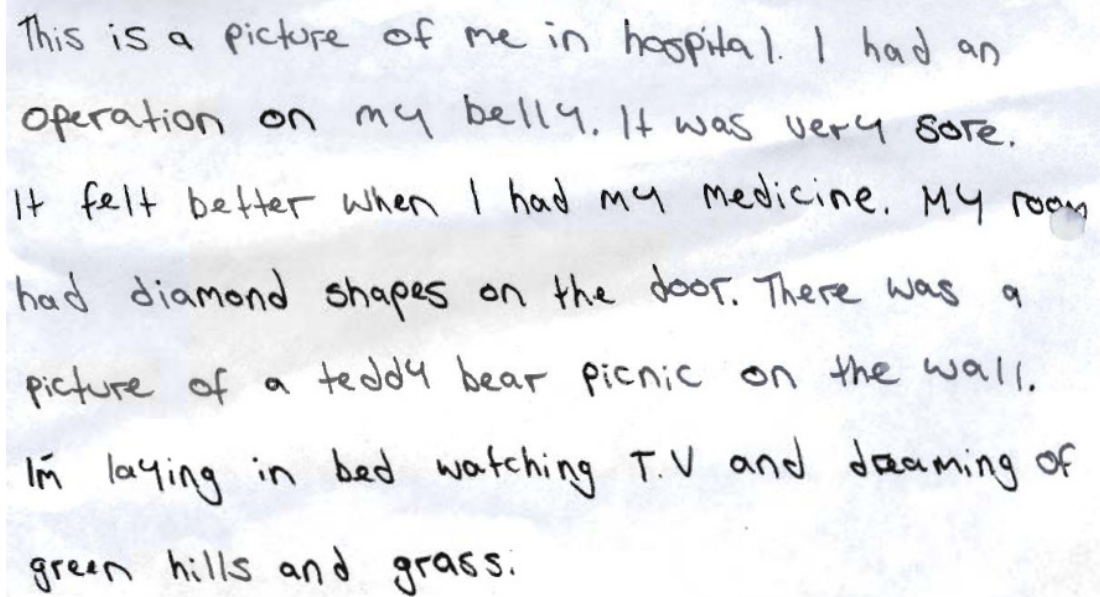 This is a picture of me in hospital. I had an
operation on my belly. It was very sore.
It felt better when I had my medicine. My room
had diamond shapes on the door. There was a
picture of a teddy bear picnic on the wall.
I'm laying in bed watching T.V and dreaming of
green hills and grass.